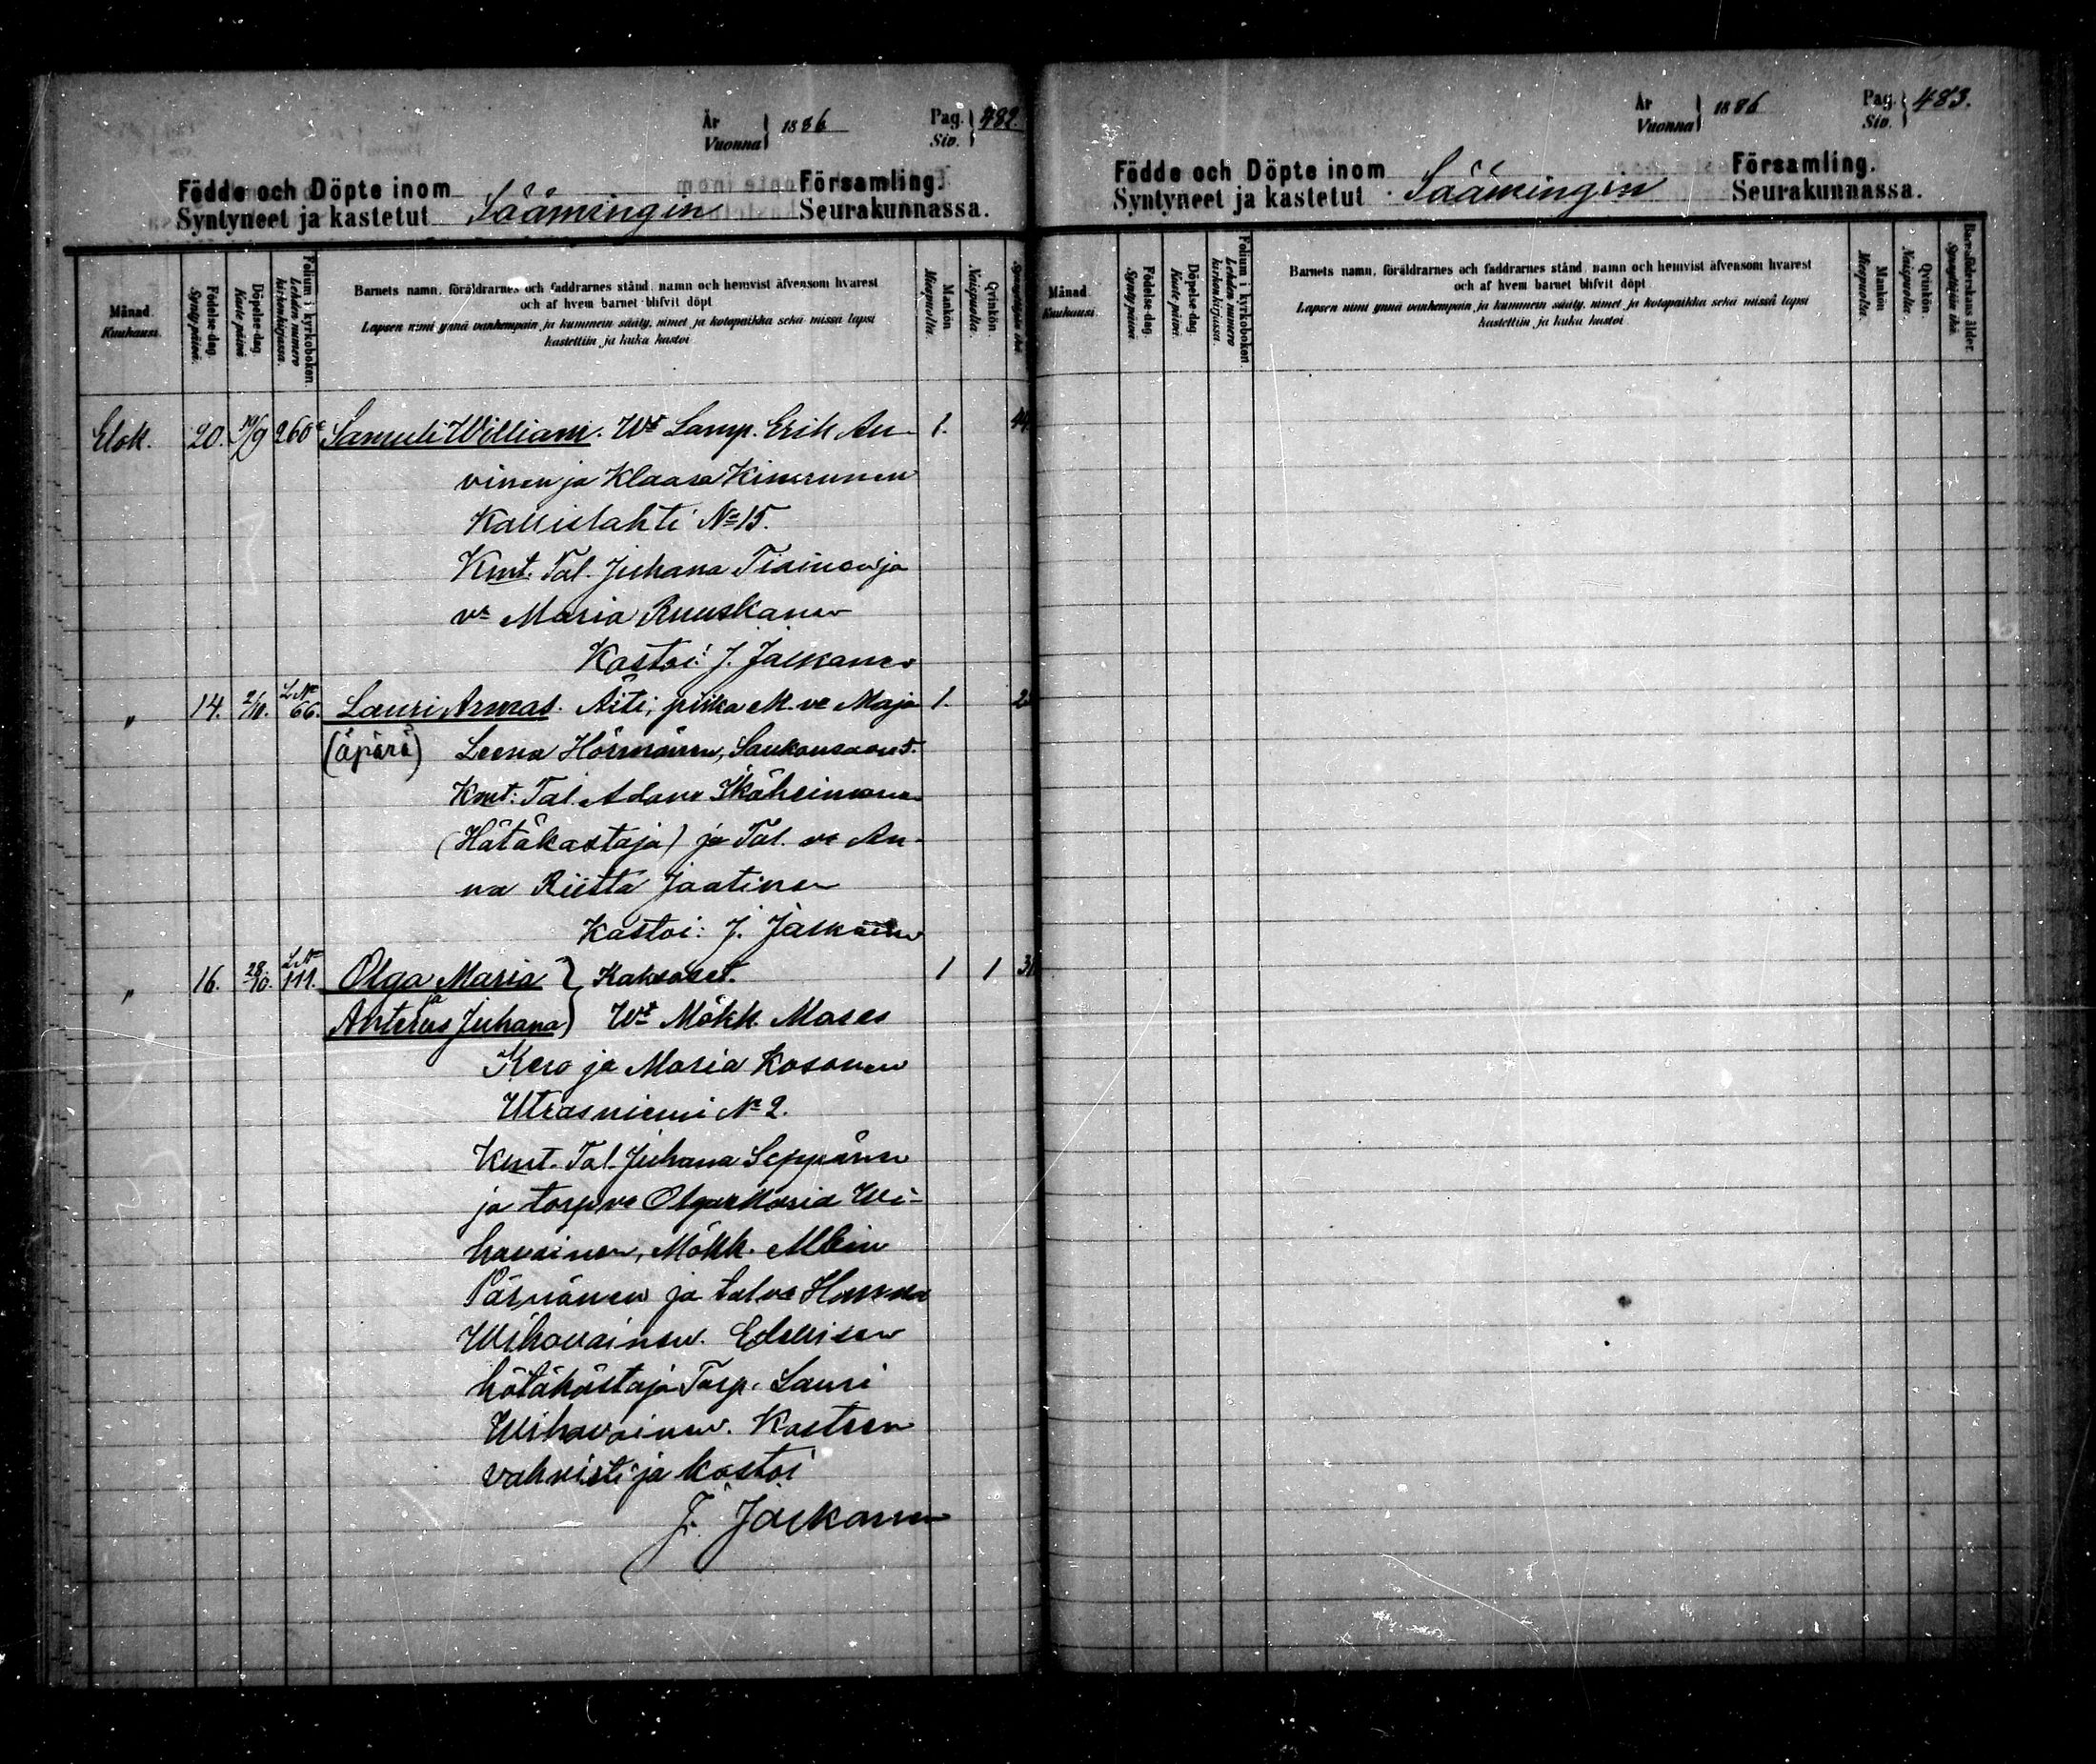 År
Vuonna } 1886
Pag.
Siv. } 482.
Födde och Döpte inom
Syntyneet ja kastetut Säämingin
Församling.
Seurakunnassa.
Månad.
Kuukausi.
Födelse-dag.
Synty päivä.
Döpelse-dag.
Kaste päivä.
Folium i kyrkoboken.
Lehden numero
kirkonkirjassa.
Barnets namn, föräldrarnes och faddrarnes stånd, namn och hemvist äfvensom hvarest
och af hvem barnet blifvit döpt
Lapsen nimi ynnä vanhempain ja kummein sääty, nimet ja kotopaikka sekä missä lapsi
kastettiin ja kuka kastoi
Mankön
Miespuolia.
Qvinkön.
Naispuolia.
Elok. 20. /9 260 Samuli William. Wt Lamp. Erik Au- 1. 44
vinen ja Klaasa Kinnunen
Kallislahti No 15.
Kmt. Tal. Juhana Tiainen ja
va Maria Ruuskanen
Kastoi: J. Jalkanen
" 14. 2/10. L No 66. Lauri Armas. Äiti, piika M. va Maja 1. 2
(äpärä) Leena Hörmänen, Saukonsaari.
Kmt: Tal. Adam Ikäheimonen
(Hätäkastaja) ja Tal. va An-
na Riitta Jaatinen
Kastoi: J. Jalkanen
" 16. 28/10. L No 111. Olga Maria } Kaksoset. 1 1 3
ja
Ahterus Juhana } Wt Mökk. Moses
Kero ja Maria Kosonen
Utrasniemi No 2.
Kmt. Tal. Juhana Seppänen
ja torp va Olga Maria Wi-
havainen, Mökk. Albin
Päsnänen ja tal va Hanna
Wihavainen. Edellisen
hätäkastaja Torp. Lauri
Wihavainen. Kasteen
vahvisti ja kastoi
J. Jalkanen
År
Vuonna } 1886
Pag.
Siv. } 483.
Födde och Döpte inom
Syntyneet ja kastetut Säämingin
Församling.
Seurakunnassa.
Månad
Kuukausi.
Födelse-dag.
Synty päivä.
Döpelse-dag.
Kaste päivä.
Folium i kyrkoboken.
Lehden numero
kirkonkirjassa.
Barnets namn, föräldrarnes och faddrarnes stånd, namn och hemvist äfvensom hvarest
och af hvem barnet blifvit döpt
Lapsen nimi ynnä vanhempain ja kummein sääty, nimet ja kotopaikka sekä missä lapsi
kastettiin ja kuka kastoi
Mankön
Miespuolia.
Qvinkön.
Naispuolia.
Barnaföderskans ålder.
Synnyttäjän ikä.